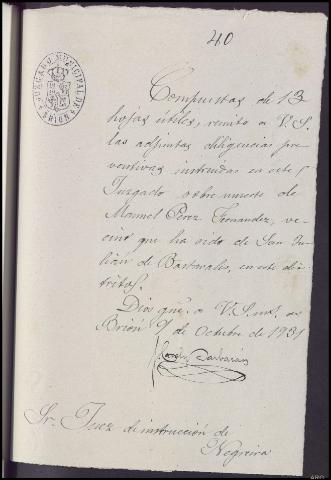 40
JUZGADO MUNICIPAL DE
BRIÓN
Compuestas de 13
hojas útiles, remito a V.S.
las adjuntas diligencias pre
ventivas instruidas en este
Juzgado sobre muerte de
Manuel Pérez Fernandez, ve
cino que ha sido de San Ju
lián de Bastavales, en este dis
trito.
Dios gue. a V.S. ms. as
Brión 9 de Octubre de 1931
Sr. Juez de instrucción de
Negreira